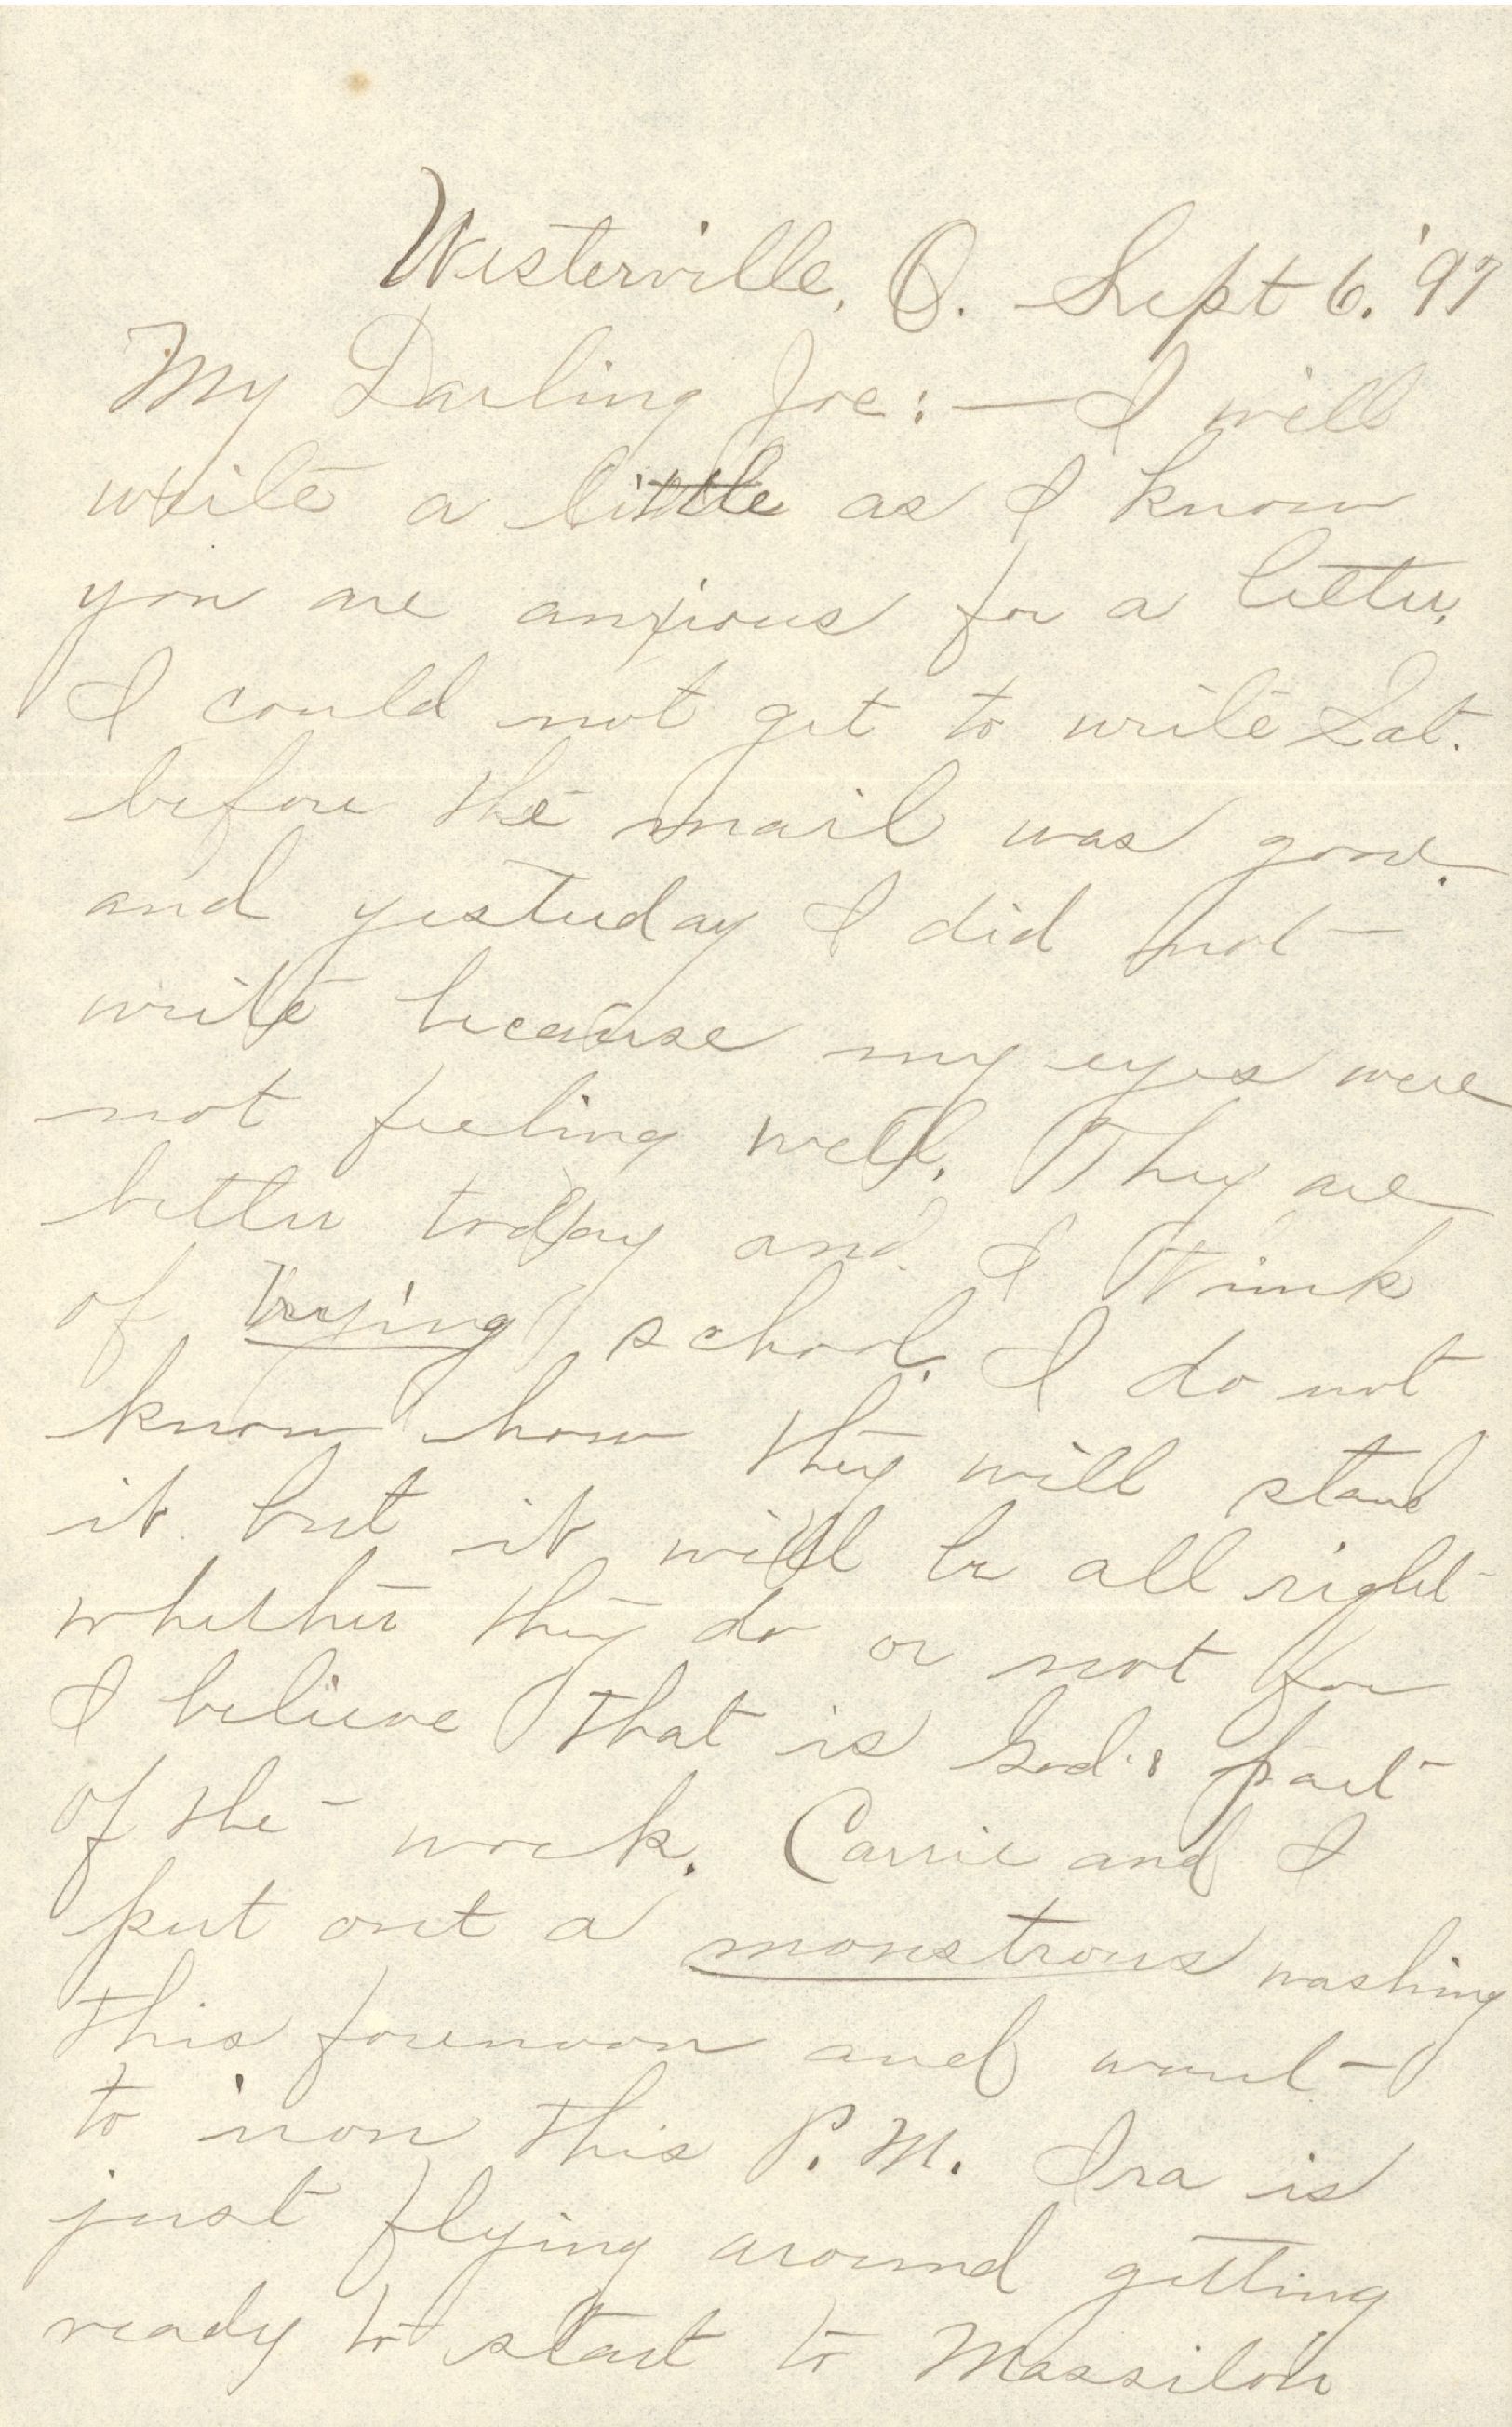 Westerville, O. Sept 6. '97
My Darling Joe:— I will
write a little as I know
you are anxious for a letter.
I could not get to write Sat.
before the mail was gone.
and yesterday I did not
write because my eyes were
not feeling well. They are
better today and I think
of trying school. I do not
know how they will stand
it but it will be all right
whether they do or not for
I believe that is God's part
of the work. Carrie and I
put out a monstrous washing
this forenoon and want
to iron this P.M. Ira is
just flying around getting
ready to start to Massilon